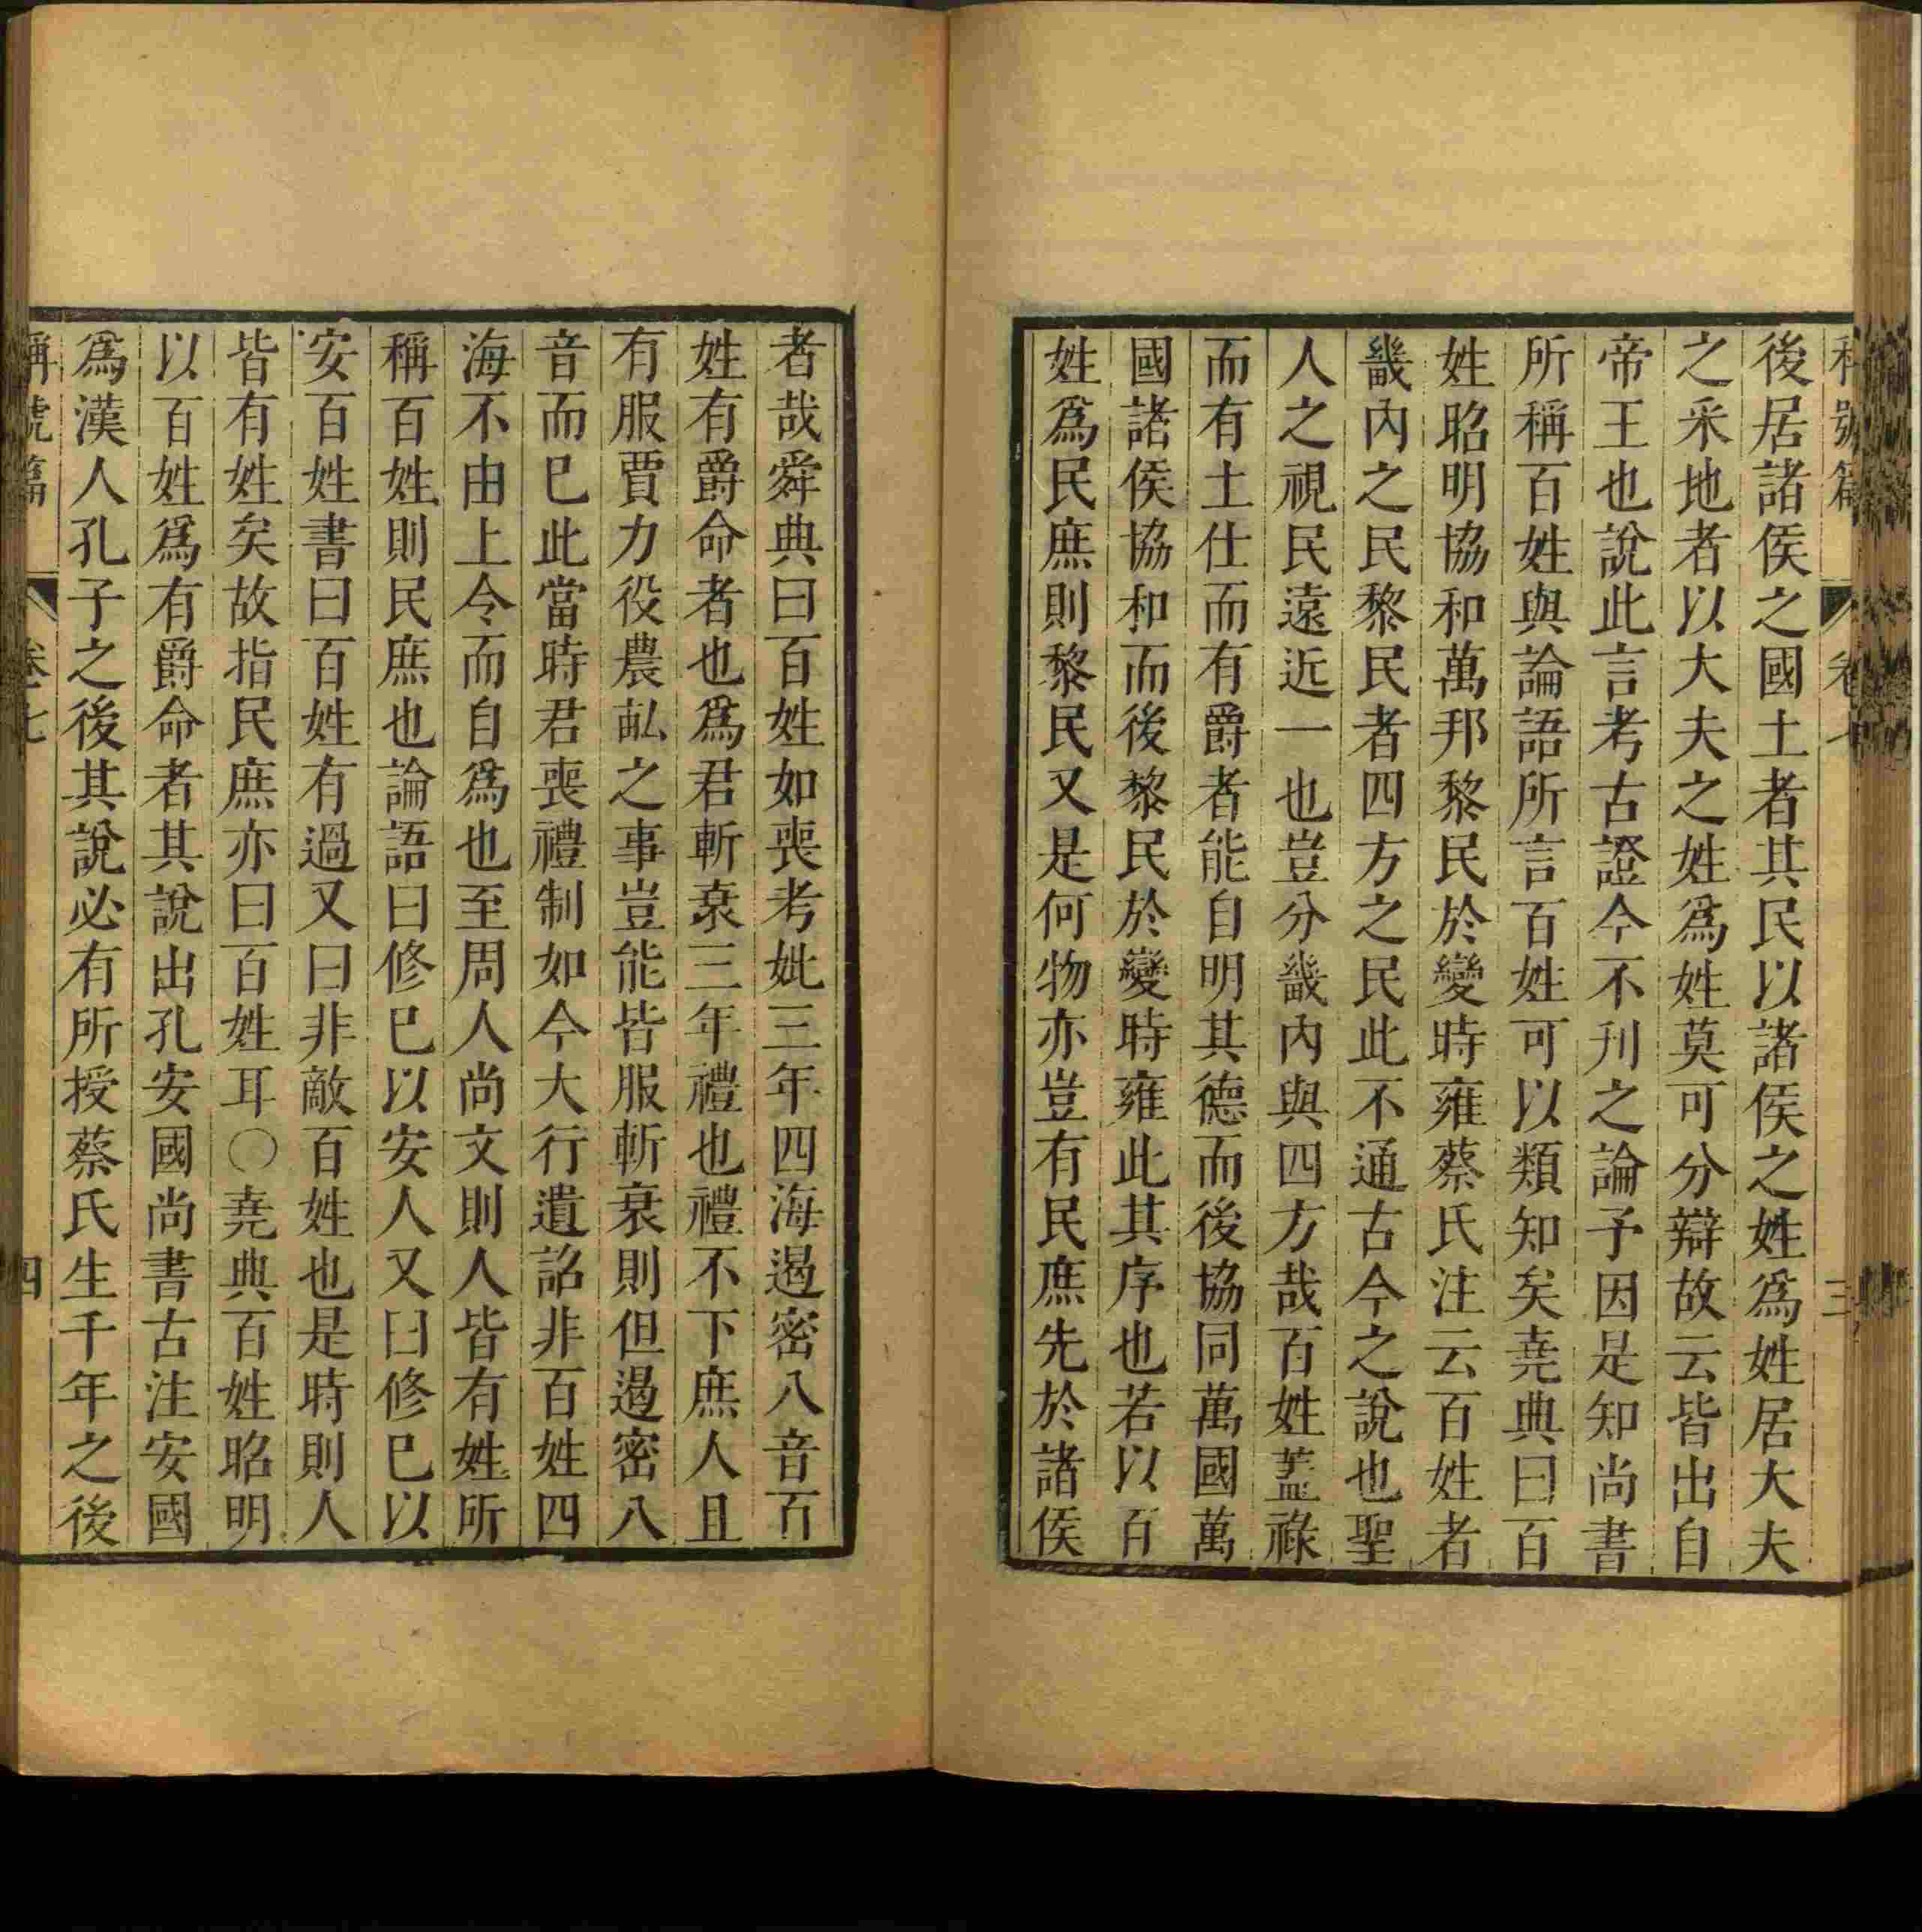 稱號篇 卷七 三
後居諸侯之國土者其民以諸侯之姓爲姓居大夫
之采地者以大夫之姓爲姓莫可分辯故云皆出自
帝王也說此言考古證今不刊之論予因是知尚書
所稱百姓與論語所言百姓可以類知矣堯典曰百
姓昭明協和萬邦黎民於變時雍蔡氏注云百姓者
畿內之民黎民者四方之民此不通古今之說也聖
人之視民遠近一也豈分畿內與四方哉百姓蓋祿
而有土仕而有爵者能自明其德而後協同萬國萬
國諸侯協和而後黎民於變時雍此其序也若以百
姓爲民庶則黎民又是何物亦豈有民庶先於諸侯
者哉舜典曰百姓如喪考妣三年四海遏密八音百
姓有爵命者也爲君斬衰三年禮也禮不下庶人且
有服賈力役農畝之事豈能皆服斬衰則但遏密八
音而已此當時君喪禮制如今大行遺詔非百姓四
海不由上令而自爲也至周人尚文則人皆有姓所
稱百姓則民庶也論語曰修已以安人又曰修已以
安百姓書曰百姓有過又曰非敵百姓也是時則人
皆有姓矣故指民庶亦曰百姓耳○堯典百姓昭明
以百姓爲有爵命者其說出孔安國尚書古注安國
爲漢人孔子之後其說必有所授蔡氏生千年之後
稱號篇 卷七 四